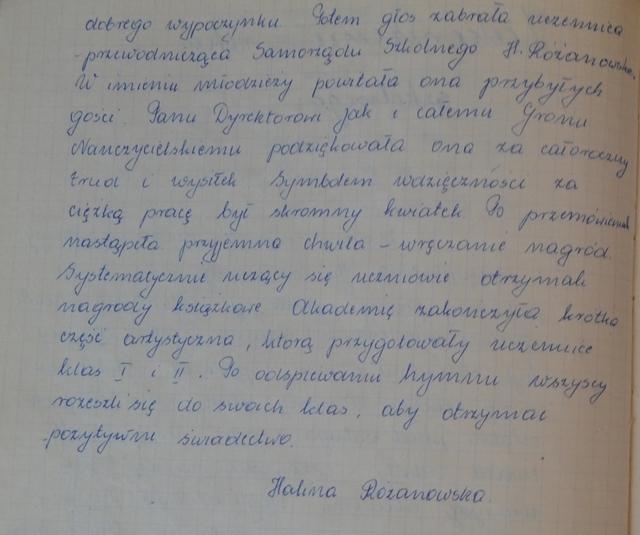 dobrego wypoczynku. Potem głos zabrała uczennica
- przewodnicząca Samorządu Szkolnego H. Różanowska.
W imieniu młodzieży powitała ona przybyłych
gości. Panu Dyrektorowi jak i całemu Gronu
Nauczycielskiemu podziękowała ona za całoroczny
trud i wysiłek. Symbolem wdzięczności za
ciężką pracę był skromny kwiatek. Po przemówieniach
nastąpiła przyjemna chwila - wręczanie nagród.
Systematycznie uczący się uczniowie otrzymali
nagrody książkowe. Akademię zakończyła krótka
część artystyczna, którą przygotowały uczennice
klas I i II. Po odśpiewaniu hymnu wszyscy
rozeszli się do swoich klas, aby otrzymać
pozytywne świadectwo.
Halina Różanowska.